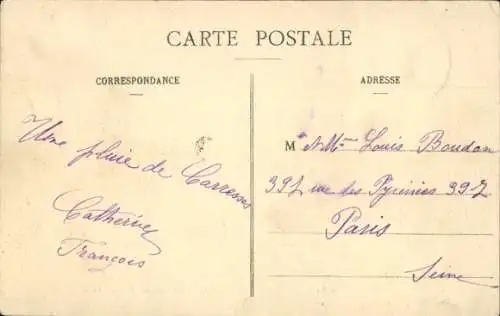 CARTE POSTALE
CORRESPONDANCE
ADRESSE
Une pluie de Carresses
Catherine
François
M et Mme Louis Boudon
392 rue des Pyrénées 392
Paris
Seine